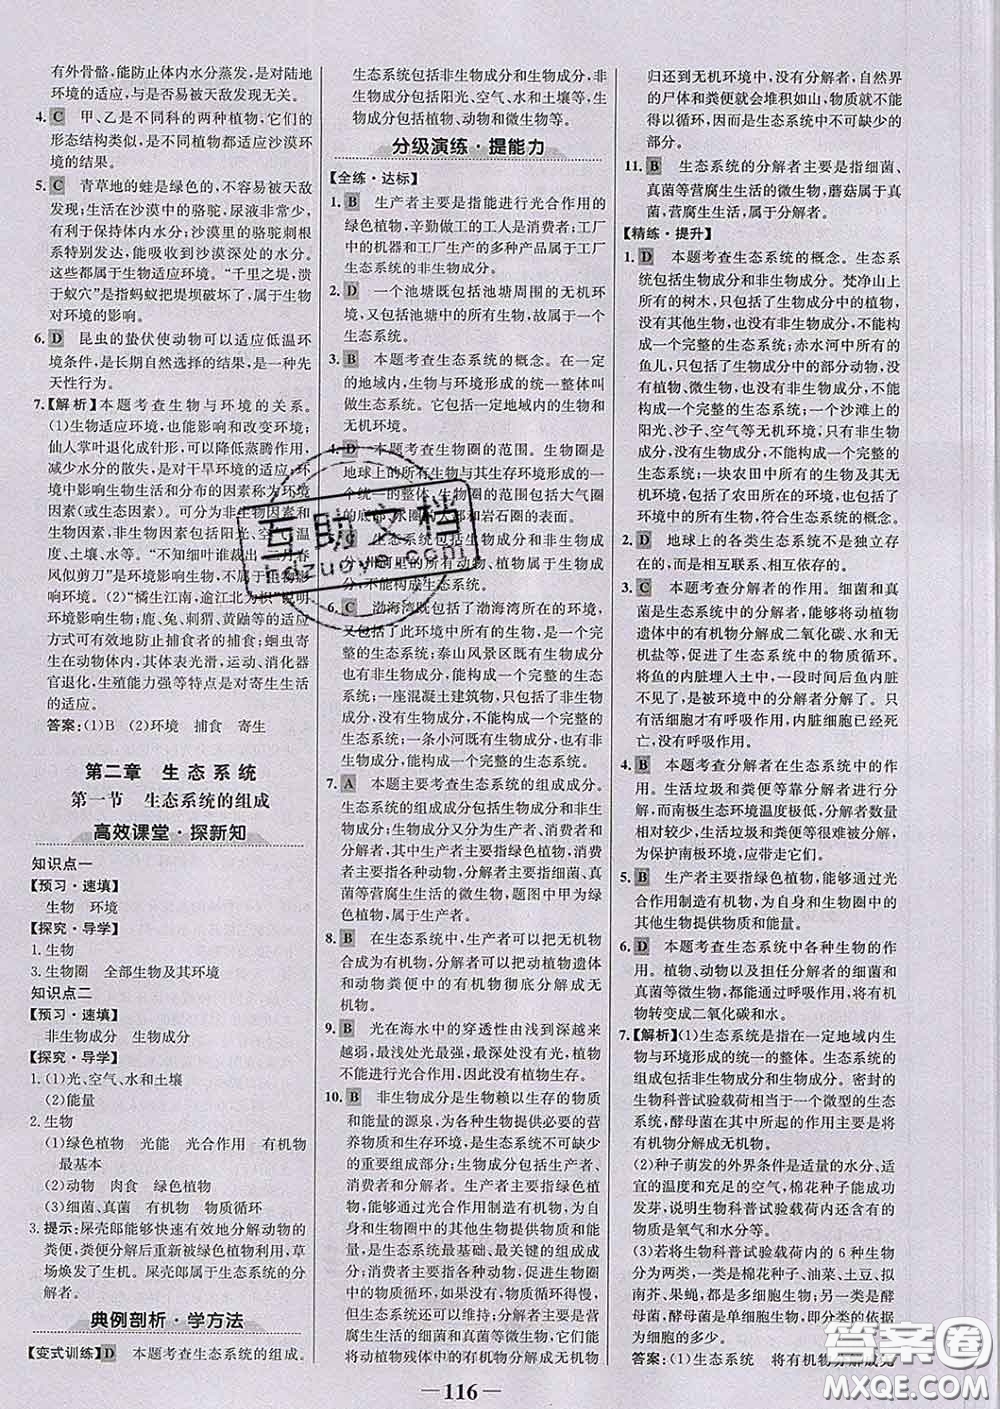 有外骨骼,能防止体内水分蒸发,是对陆地
环境的适应,与是否易被天敌发现无关。
4. C 甲、乙是不同科的两种植物,它们的
形态结构类似,是不同植物适应沙漠环
境的结果。
5. C 青草地的蛙是绿色的,不容易被天敌
发现;生活在沙漠中的骆驼,尿液非常少,
有利于保持体内水分;沙漠里的骆驼刺根
系特别发达,能吸收到沙漠深处的水分。
这些都属于生物适应环境。“千里之堤,溃
于蚁穴”是指蚂蚁把堤坝破坏了,属于生物
对环境的影响。
6. D 昆虫的蛰伏使动物可以适应低温环
境条件,是长期自然选择的结果,是一种先
天性行为。
7.【解析】本题考查生物与环境的关系。
(1)生物适应环境,也能影响和改变环境;
仙人掌叶退化成针形,可以降低蒸腾作用,
减少水分的散失,是对干旱环境的适应;环
境中影响生物生活和分布的因素称为环境
因素(或生态因素)。可分为非生物因素和
生物因素,非生物因素包括阳光、空气、温
度、土壤、水等。“不知细叶谁裁出,二月春
风似剪刀”是环境影响生物,不属于生物影
响环境。(2)“橘生江南,逾江北为枳”说明
环境影响生物;鹿、兔、刺猬、黄鼬等的适应
方式可有效地防止捕食者的捕食;蛔虫寄
生在动物体内,其体表光滑,运动、消化器
官退化,生殖能力强等特点是对寄生生活
的适应。
答案:(1)B (2)环境 捕食 寄生
第二章 生态系统
第一节 生态系统的组成
高效课堂·探新知
知识点一
【预习·速填】
生物 环境
【探究·导学】
1. 生物
3. 生物圈 全部生物及其环境
知识点二
【预习·速填】
非生物成分 生物成分
【探究·导学】
1. (1)光、空气、水和土壤
(2)能量
2. 生物
(1)绿色植物 光能 光合作用 有机物
最基本
(2)动物 肉食 绿色植物
(3)细菌、真菌 有机物 物质循环
3. 提示:屎壳郎能够快速有效地分解动物的
粪便,粪便分解后重新被绿色植物利用,草
场焕发了生机。屎壳郎属于生态系统的分
解者。
典例剖析·学方法
【变式训练】D 本题考查生态系统的组成。
生态系统包括非生物成分和生物成分,非
生物成分包括阳光、空气、水和土壤等,生
物成分包括植物、动物和微生物等。
分级演练·提能力
【全练·达标】
1. B 生产者主要是指能进行光合作用的
绿色植物,辛勤做工的工人是消费者;工厂
中的机器和工厂生产的多种产品属于工厂
生态系统的非生物成分。
2. D 一个池塘既包括池塘周围的无机环
境,又包括池塘中的所有生物,故属于一个
生态系统。
3. B 本题考查生态系统的概念。在一定
的地域内,生物与环境形成的统一整体叫
做生态系统。它包括一定地域内的生物和
无机环境。
4. D 本题考查生物圈的范围。生物圈是
地球上的所有生物与其生存环境形成的一
个统一的整体,生物圈的范围包括大气圈
的底部、水圈的大部和岩石圈的表面。
5. A 生态系统包括生物成分和非生物成
分,一条河里的所有动物、植物属于生物成
分,不能构成生态系统。
6. C 渤海湾既包括了渤海湾所在的环境,
又包括了此环境中所有的生物,是一个完
整的生态系统;泰山风景区既有生物成分
也有非生物成分,能构成一个完整的生态
系统;一座混凝土建筑物,只包括了非生物
成分,没有生物成分,不能构成一个完整的
生态系统;一条小河既有生物成分也有非
生物成分,能构成一个完整的生态系统。
7. A 本题主要考查生态系统的组成成分。
生态系统的组成成分包括生物成分和非生
物成分,生物成分又分为生产者、消费者和
分解者,其中生产者主要指绿色植物,消费
者主要指各种动物,分解者主要指细菌、真
菌等营腐生生活的微生物,题图中甲为绿
色植物,属于生产者。
8. B 在生态系统中,生产者可以把无机物
合成为有机物,分解者可以把动植物遗体
和动物粪便中的有机物彻底分解成无
机物。
9. B 光在海水中的穿透性由浅到深越来
越弱,最浅处光最强,最深处没有光,植物
不能进行光合作用,因此没有植物生存。
10. B 非生物成分是生物赖以生存的物质
和能量的源泉,为各种生物提供必要的营
养物质和生存环境,是生态系统不可缺少
的重要组成部分;生物成分包括生产者、
消费者和分解者,生产者主要指绿色植
物,能够通过光合作用制造有机物,为自
身和生物圈中的其他生物提供物质和能
量,生态系统最基础、最关键的组成成分
是生产者;消费者主要指各种动物,在促
进生物圈的物质循环中起重要作用,生物
圈如果没有消费者,物质循环慢得多,但
生态系统还可以维持;分解者主要是营腐
生生活的细菌和真菌等微生物,它们能够
将动植物残体中的有机物分解成无机物
归还到无机环境中,没有分解者,自然界
的尸体和粪便就会堆积如山,物质就不能
得以循环,因而是不可缺少的部分。
11. B 生态系统的分解者主要是指细菌、
真菌等营腐生生活的微生物,蘑菇属于真
菌,营腐生生活,属于分解者。
【精练·提升】
1. D 本题考查生态系统的概念。生态系
统包括生物成分和非生物成分。梵净山上
所有的树木,只包括了生物成分中的植物,
没有其他生物,也没有非生物成分,不能构
成一个完整的生态系统;赤水河中所有的
鱼儿,只包括了生物成分中的部分动物,
没有植物、微生物,也没有非生物成分,不能
构成一个完整的生态系统;一个沙滩上的
阳光、沙子、空气等无机环境,只包括了非生
物成分,没有生物成分,不能构成一个完整的
生态系统;一块农田中的所有生物及其无
机环境,包括了农田所在的环境和农田中
所有的生物,符合生态系统的概念。
2. D 地球上的各类生态系统不是独立存
在的,而是相互联系、相互依存的。
3. C 本题考查分解者的作用。细菌和真
菌是生态系统中的分解者,能够将动植物
遗体中的有机物分解成二氧化碳、水和无
机盐等,促进了生态系统中的物质循环。
将鱼的内脏埋入土中,一段时间后鱼内脏
不见了,是被环境中的分解者分解了。只
有活细胞才有呼吸作用,内脏细胞已经死
亡,没有呼吸作用。
4. B 本题考查分解者在生态系统中的作
用。生活垃圾和粪便等靠分解者进行分
解,而南极生态环境温度极低,分解者数量
较少,生活垃圾和粪便等很难被分解,所以
为保护南极环境,应带走它们。
5. B 生产者主要指绿色植物,能够通过光
合作用制造有机物,为自身和生物圈中的
其他生物提供物质和能量。
6. D 本题考查生态系统中各种生物的作
用。植物、动物以及担任分解者的细菌和
真菌等微生物,都能通过呼吸作用,将有机
物转变成二氧化碳和水。
7.【解析】(1)生态系统是指在一定地域内生
物与环境形成的统一的整体。生态系统的
组成包括生物成分和非生物成分。密封的
生物科普试验载荷相当于一个微型的生态
系统,酵母菌在其中所起的作用主要是将
有机物分解成无机物。
(2)种子萌发的外界条件是适量的水分、适
宜的温度和充足的空气,棉花种子能成功
发芽,说明生物科普试验载荷内还含有的
物质是氧气和水分等。
(3)若将生物科普试验载荷内的6种生物
分成两类:一类是棉花种子、油菜、土豆、拟
南芥、果蝇,它们都属于多细胞生物,一类
是酵母菌,属于单细胞生物,分类依据是细
胞数目的多少。
答案:(1)生态系统 将有机物分解成无
— 116 —
互助文档
hdzuoye.com
答案圈
MXQE.COM